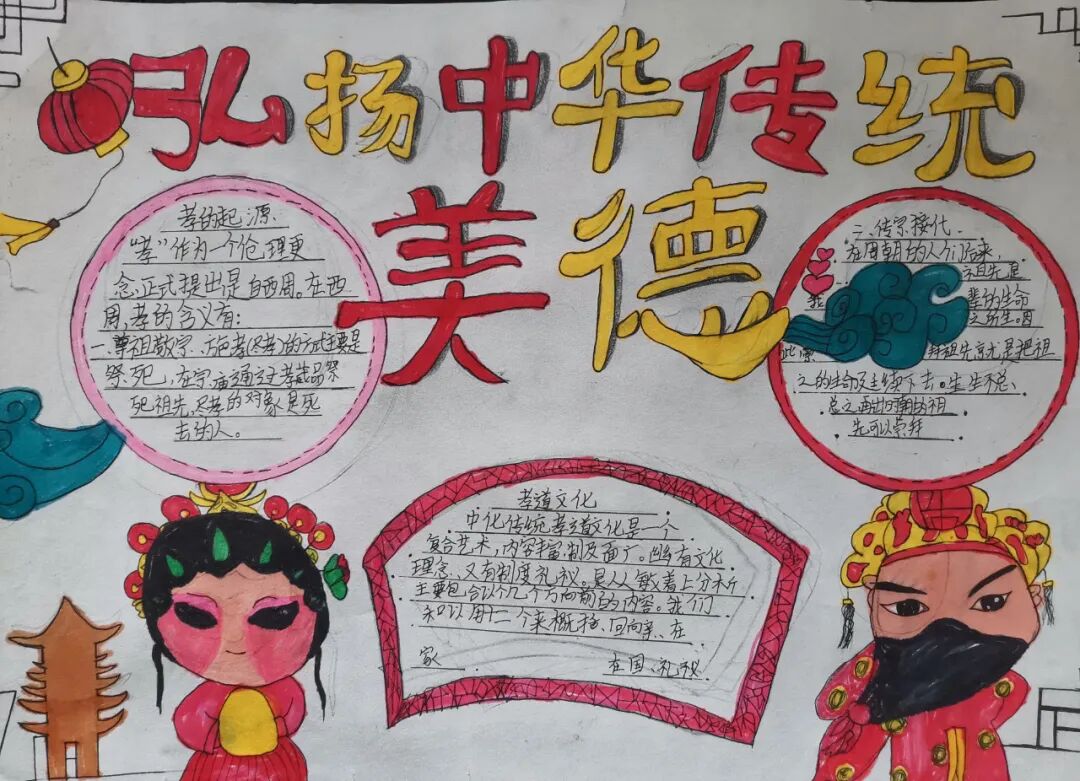 弘扬中华传统
美德
孝的起源
“孝”作为一个伦理更
念,正式提出是自西周。在西
周,孝的含义有:
一、尊祖敬宗、方色孝(尽孝)的方式主要是
祭死,在宗庙通过孝献品祭
死祖先,尽孝的对象是死
去的人。
二、传宗接代
在周朝的人们后来,
祖先是
我 辈的生命
之所生。因
此崇 拜祖先就是把祖
之的生命延续下去。生生不息、
总之西出周朝的祖
先可以崇拜
孝道文化
中化传统孝道文化是一个
复合艺术,内容丰富,制及面广。幽有文化
理念、又有制度礼仪。是从敬着上分析
主要包含以个几个方向前的内容。我们
和以用十二个来概括、回向亲、在
家 在国、礼仪